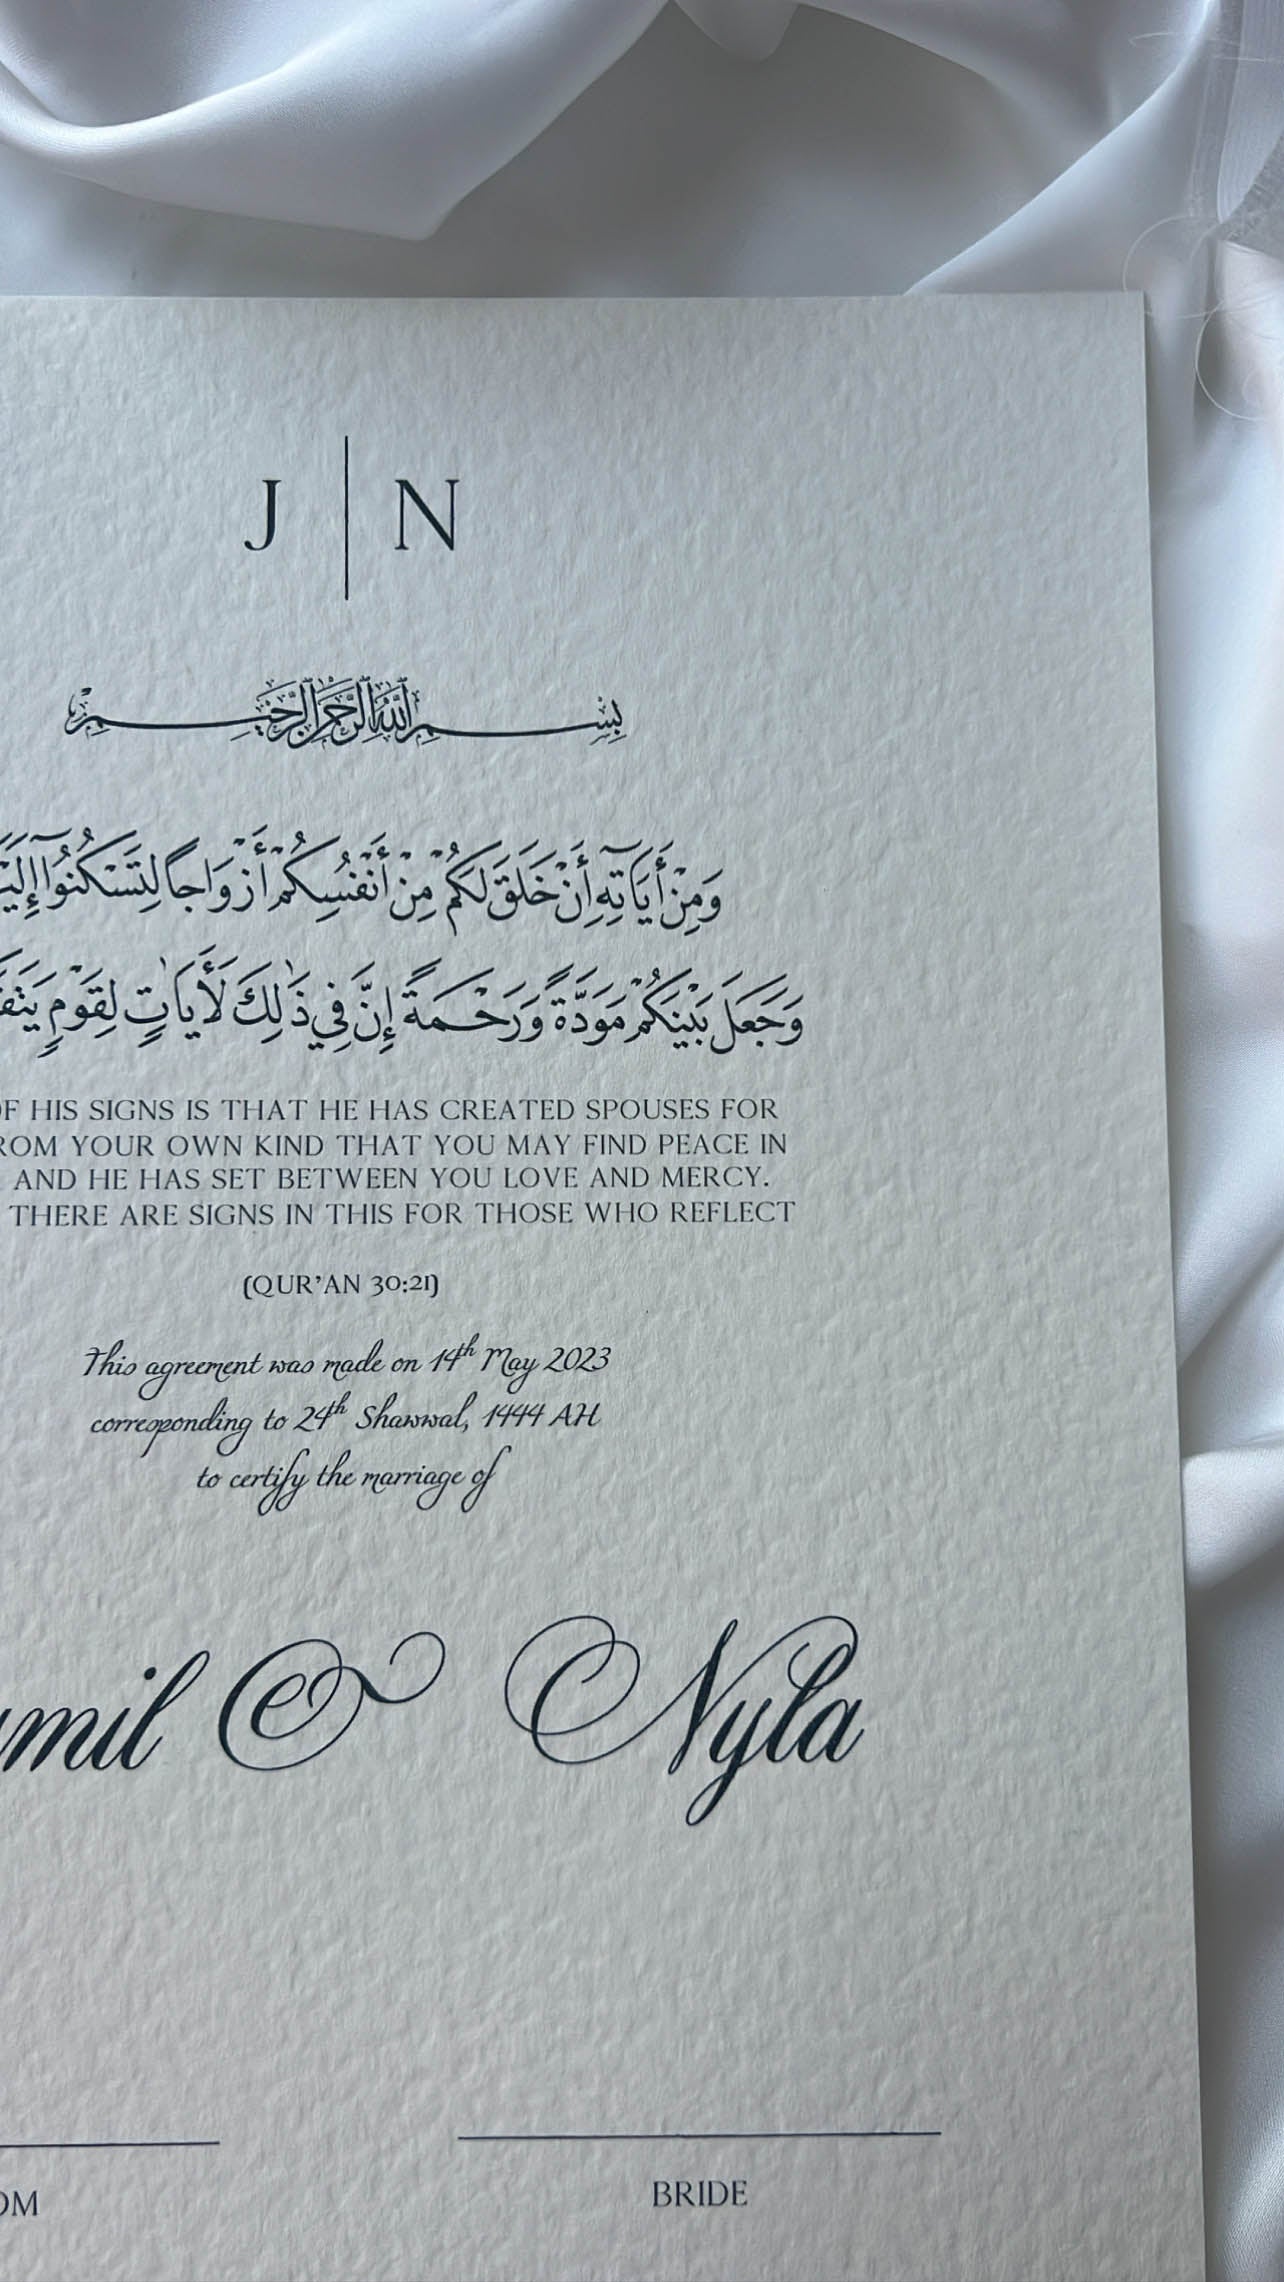 J | N
بِسْمِ اللهِ الرَّحْمٰنِ الرَّحِيْمِ
وَمِنْ أَيَاتِهِ أَنْ خَلَقَ لَكُمْ مِنْ أَنْفُسِكُمْ أَزْوَاجًا لِتَسْكُنُوٓا
وَجَعَلَ بَيْنَكُمْ مَوَدَّةً وَرَحْمَةً إِنَّ فِي ذٰلِكَ لَأَيَاتٍ لِقَوْمٍ
HIS SIGNS IS THAT HE HAS CREATED SPOUSES FOR
YOUR OWN KIND THAT YOU MAY FIND PEACE IN
AND HE HAS SET BETWEEN YOU LOVE AND MERCY.
THERE ARE SIGNS IN THIS FOR THOSE WHO REFLECT
(QUR'AN 30:21)
This agreement was made on 14th May 2023
corresponding to 24th Shawwal, 1444 AH
to certify the marriage of
& Nyla
BRIDE